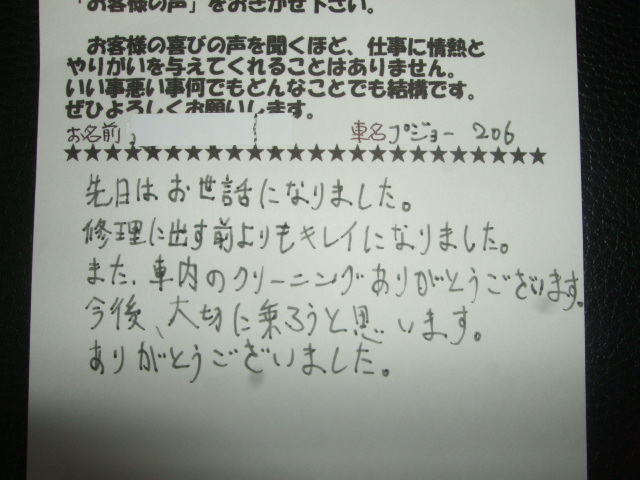 「お客様の声」をおきかせ下さい。
お客様の喜びの声を聞くほど、仕事に情熱と
やりがいを与えてくれることはありません。
いい事悪い事何でもどんなことでも結構です。
ぜひよろしくお願いします。
お名前 車名 プジョー 206
★★★★★★★★★★★★★★★★★★★★★★★★★★★★★
先日はお世話になりました。
修理に出す前よりもキレイになりました。
また、車内のクリーニングありがとうございます。
今後、大切に乗ろうと思います。
ありがとうございました。